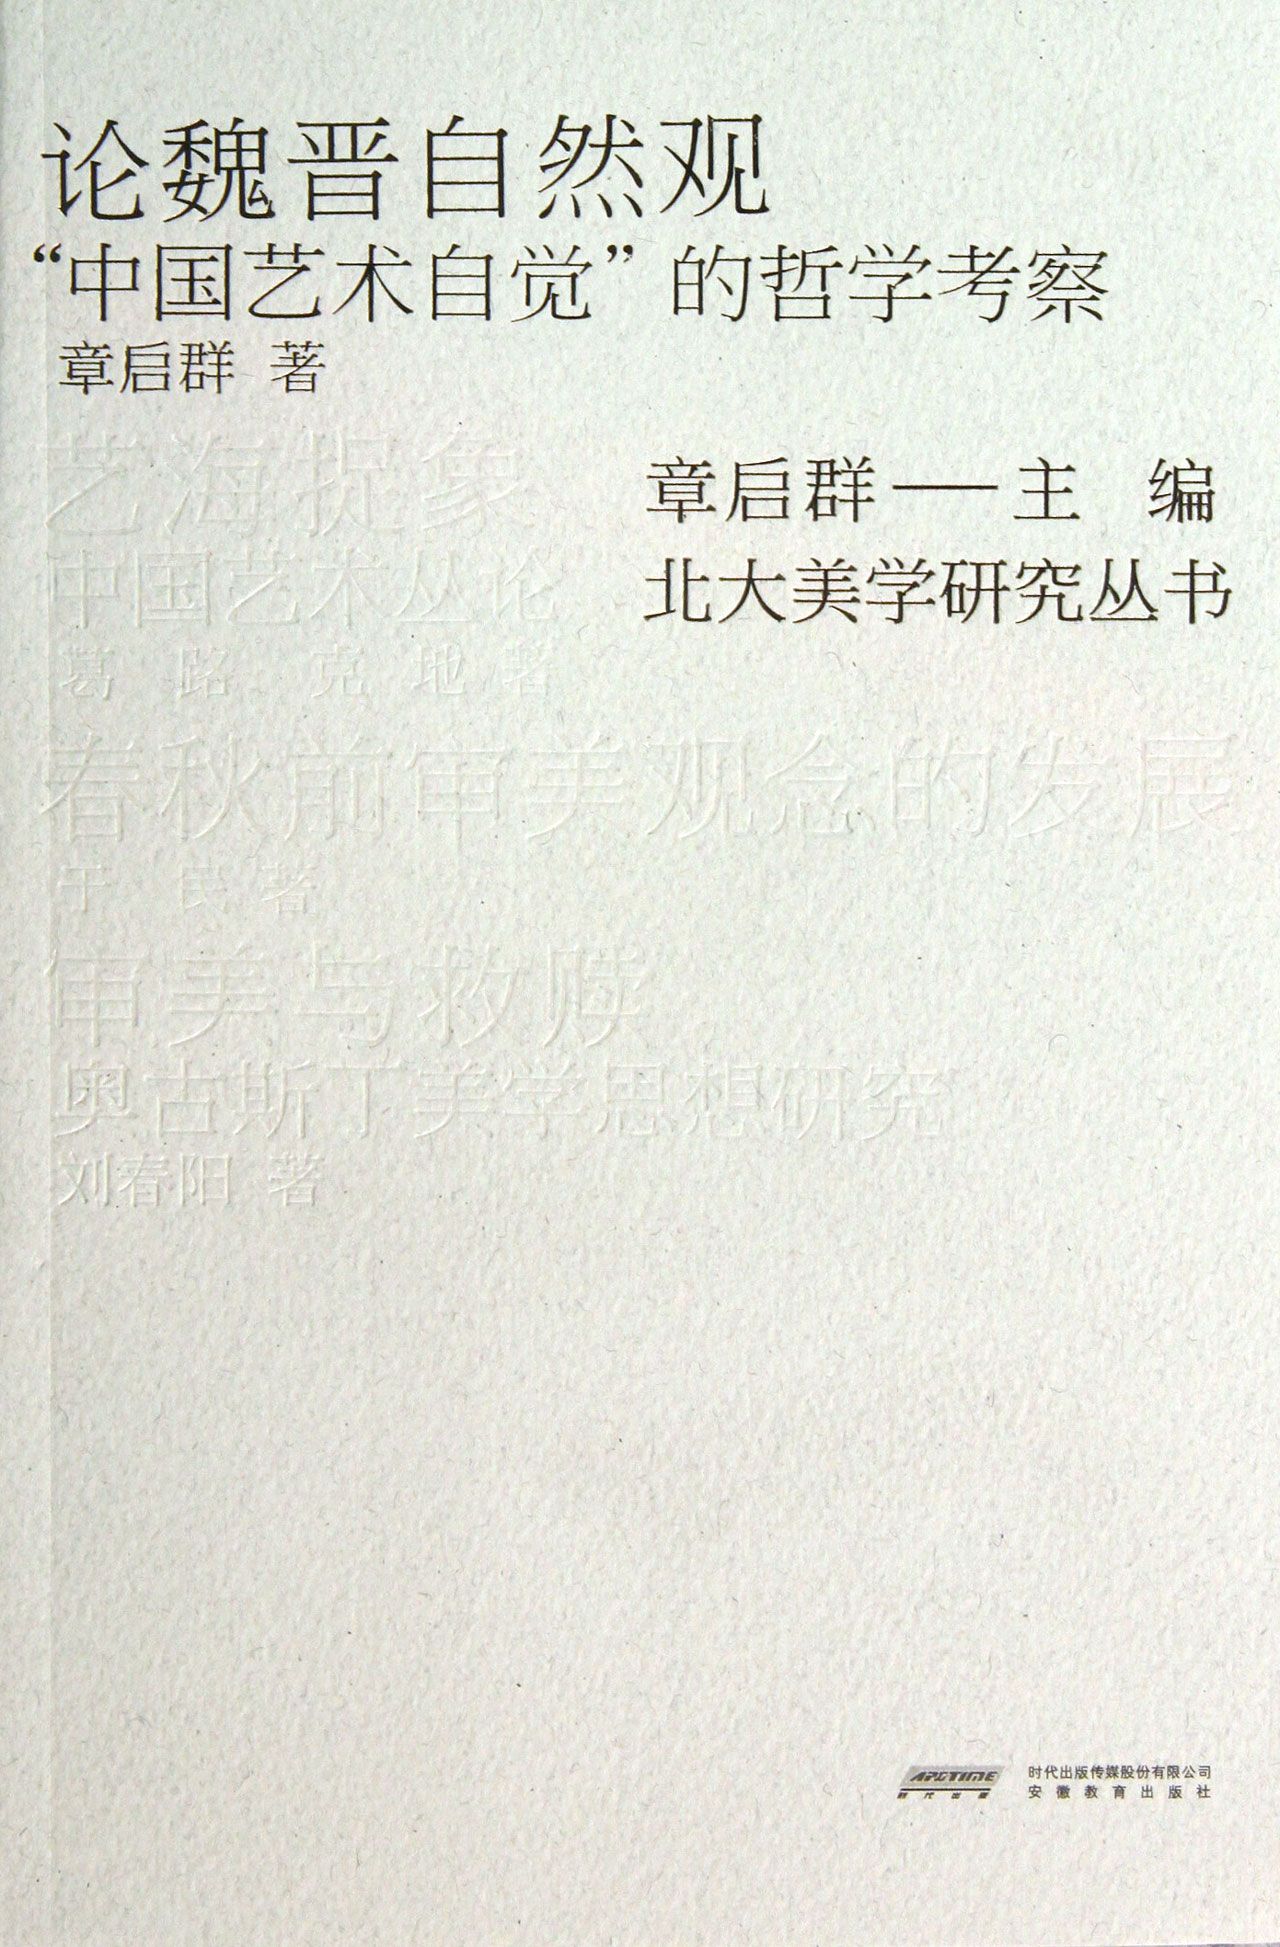 论魏晋自然观
“中国艺术自觉”的哲学考察
章启群 著
章启群——主 编
北大美学研究丛书
艺海捉象
中国艺术丛论
葛 路 克 地 著
春秋前审美观念的发展
于 民 著
审美与救赎
奥古斯丁美学思想研究
刘春阳 著
APGTIME
时代出版
时代出版传媒股份有限公司
安徽教育出版社